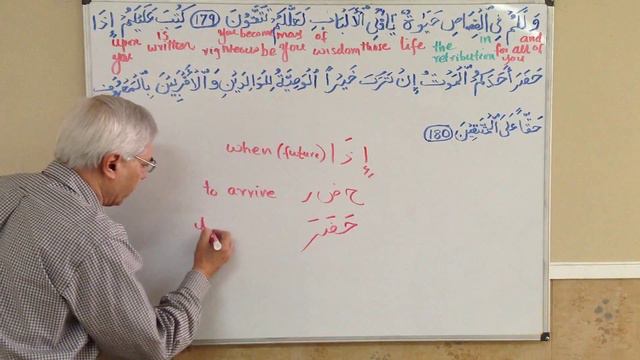 وَلَكُمْ فِي الْقِصَاصِ حَيَوٰةٌ يَٰأُولِي الْأَلْبَابِ لَعَلَّكُمْ تَتَّقُونَ (179) كُتِبَ عَلَيْكُمْ إِذَا
upon you is written you become righteous may be you of wisdom those life the retribution in and for all of you
حَضَرَ أَحَدَكُمُ الْمَوْتُ إِن تَرَكَ خَيْرًا الْوَصِيَّةُ لِلْوَالِدَيْنِ وَالْأَقْرَبِينَ بِالْمَعْرُوفِ
حَقًّا عَلَى الْمُتَّقِينَ (180)
when (future) إِذَا
to arrive ح ض ر
حَضَرَ